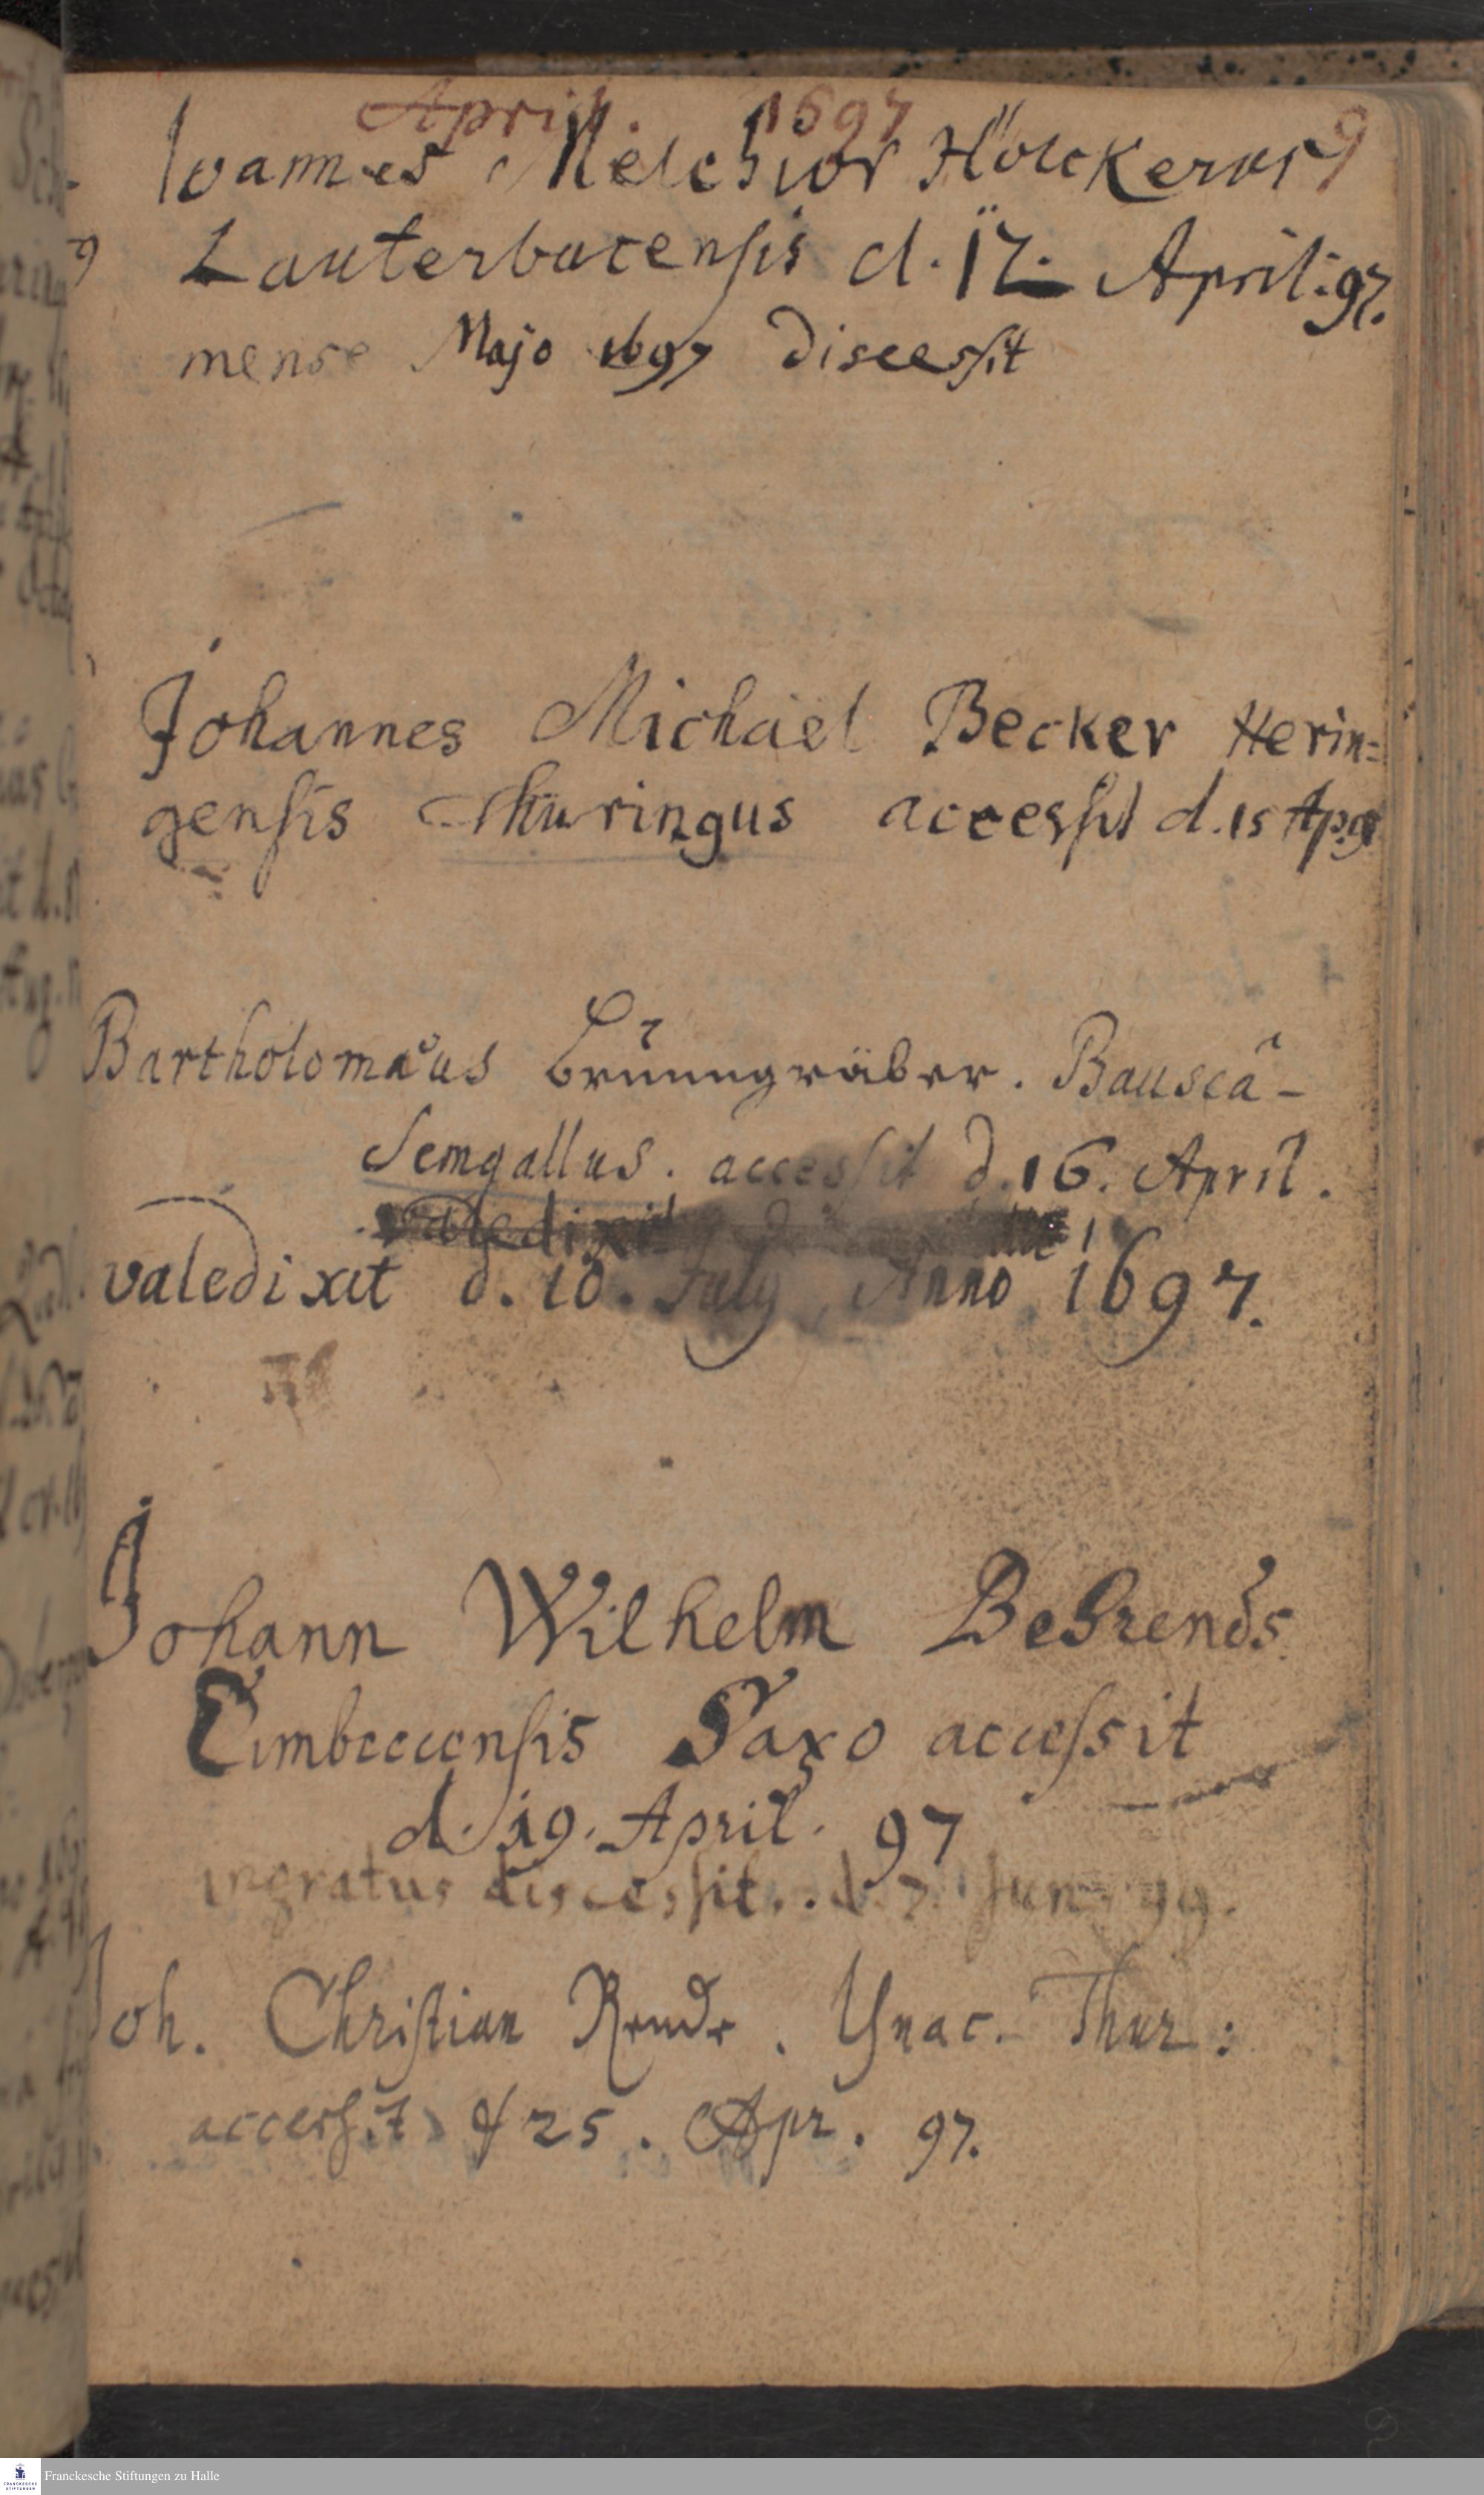 April. 1697 9
Ioannes Melchior Hölckerus
Lauterbacensis d. 12. April: 97.
mense Majo 1697 discessit
Johannes Michaël Becker Herin=
gensis Thuringus accessit d. 15 Ap. 97
Bartholomaeus Brünngräber. Bauscâ-
Semgallus. accessit d. 16. April.
valedixit
valedixit d. 10. July Anno 1697.
Johann Wilhelm Behrends
Eimbeccensis Saxo accessit
d. 19. April. 97
ingratus discessit. d. 7. Jun. 99.
Joh. Christian Rende. Ysnac. Thur:
accessit d 25. Apr. 97.
Franckesche Stiftungen zu Halle